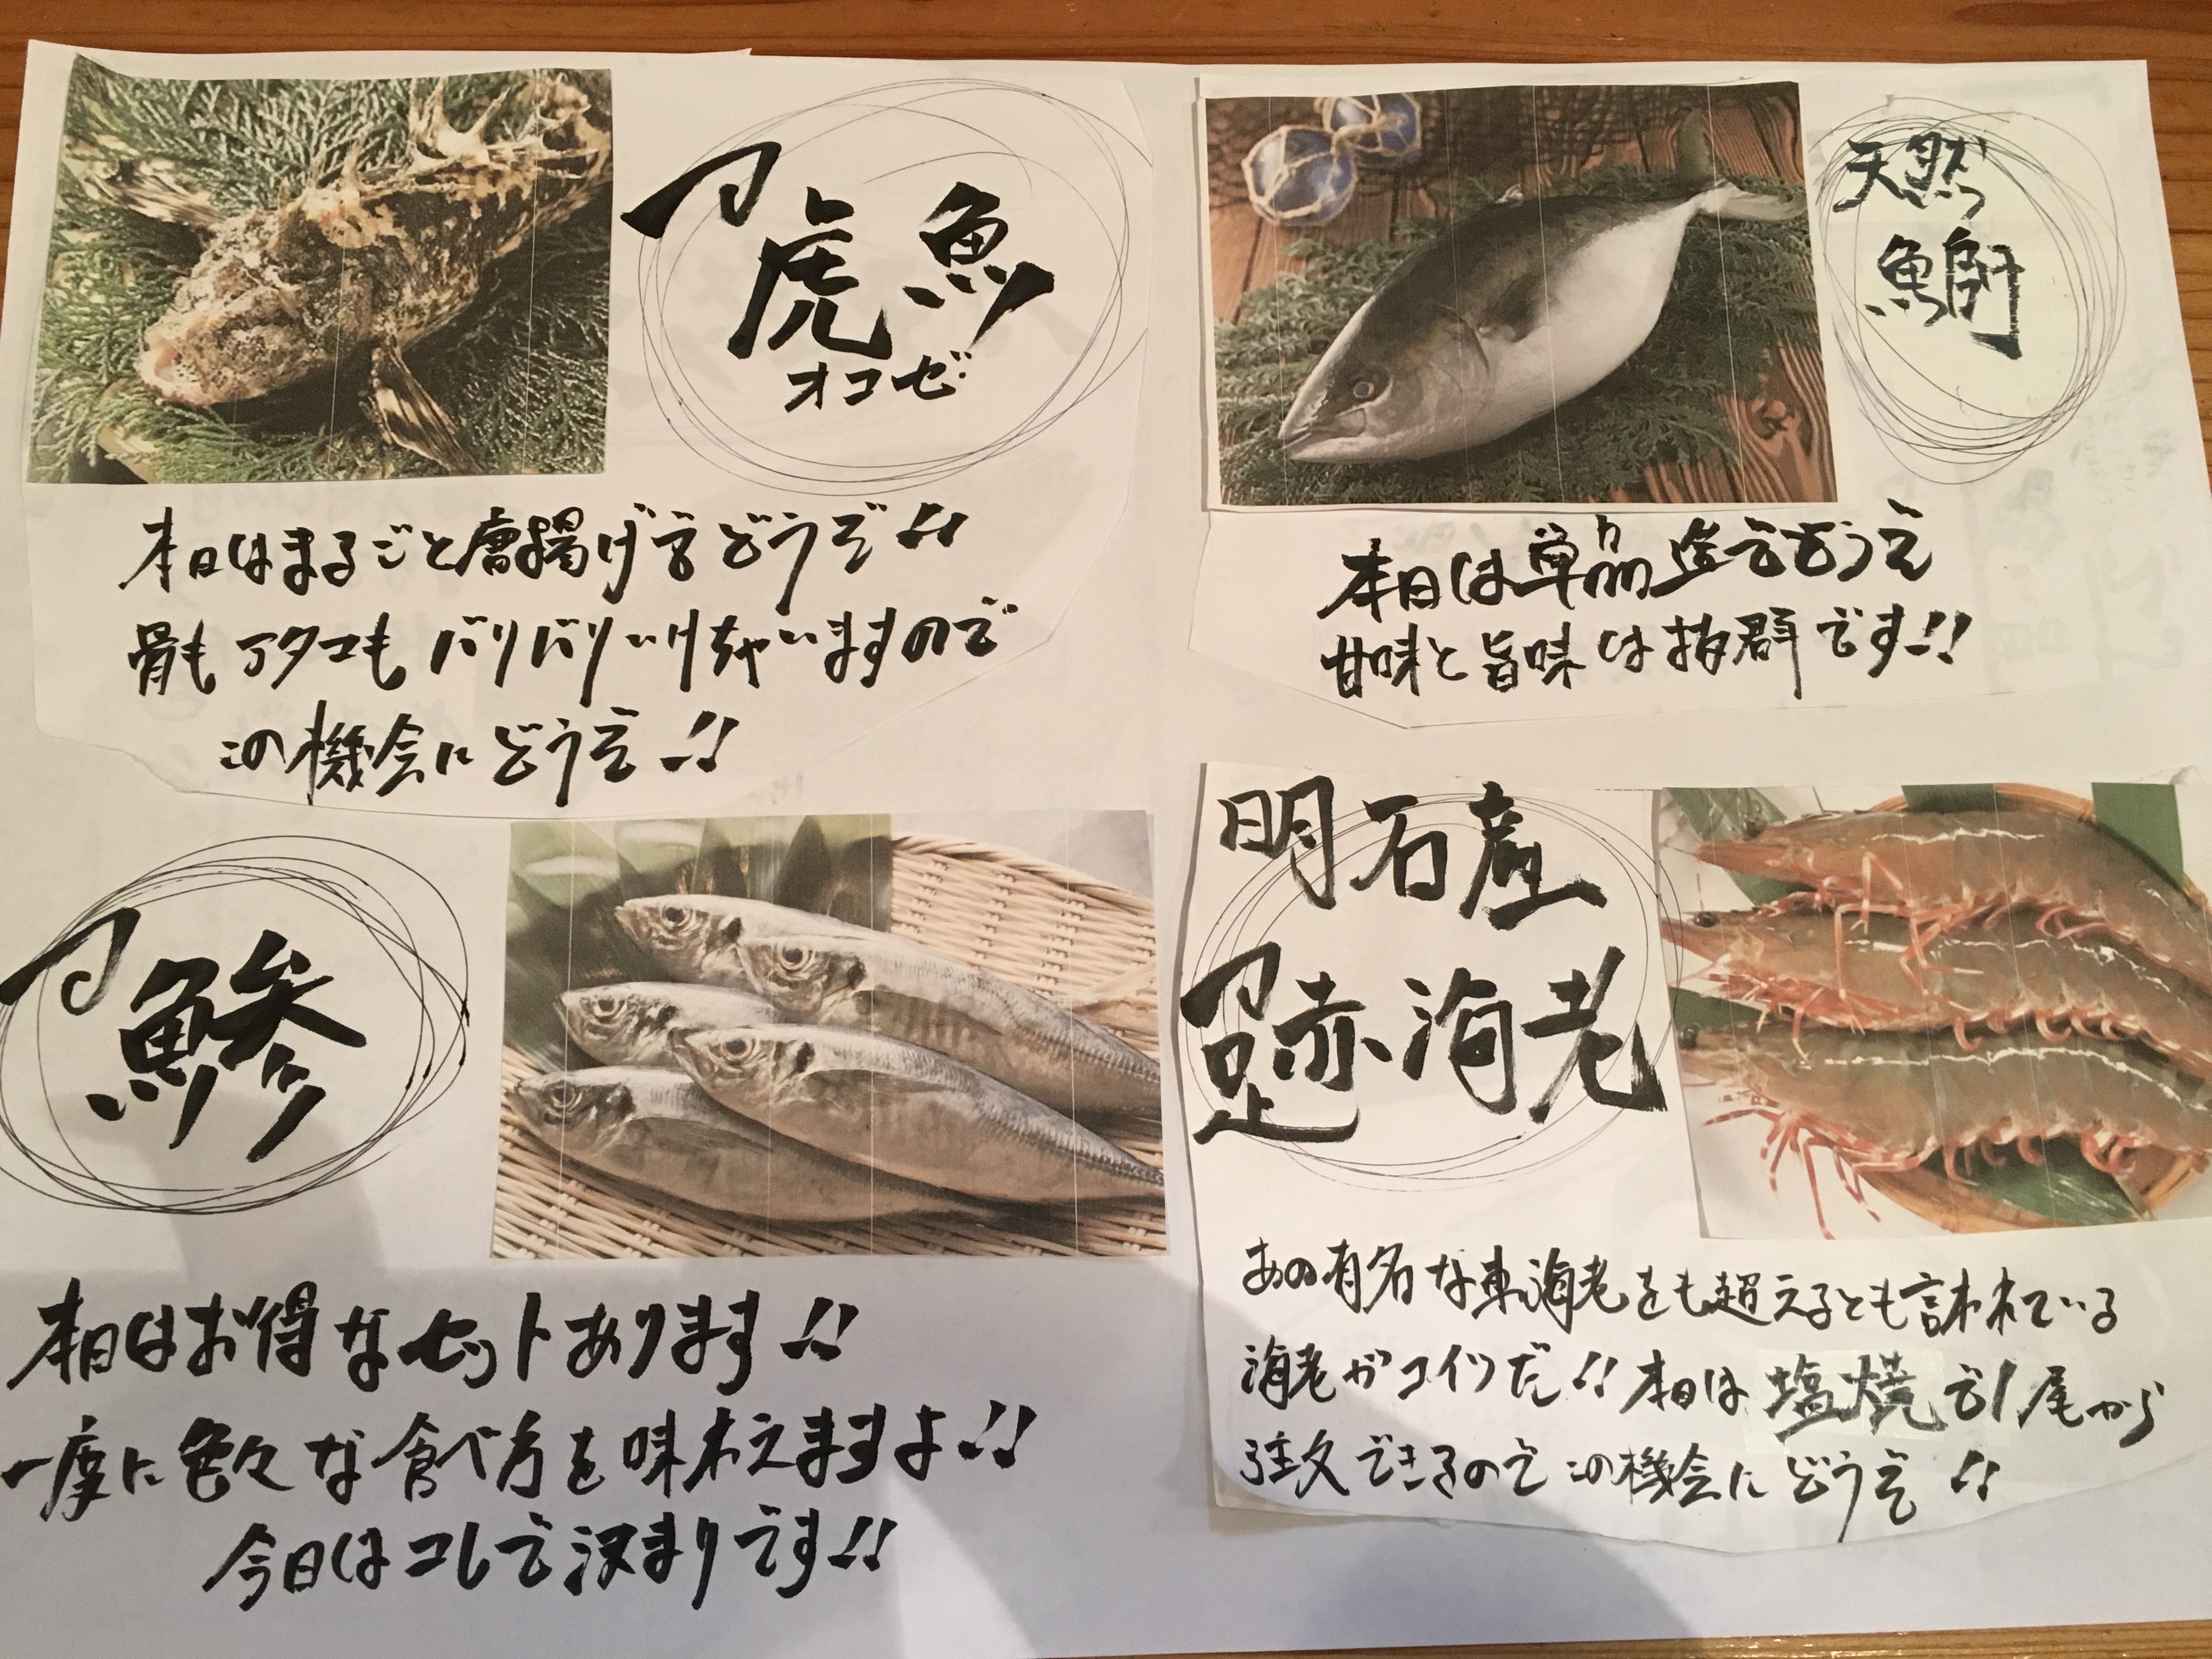 虎魚
オコゼ
本日はまるごと唐揚げでどうぞ!!
骨もアタマもバリバリいけちゃいますので
この機会にどうぞ!!
天然
鰤
本日は単品造でどうぞ
甘味と旨味は抜群です!!
鯵
本日はお得なセットあります!!
一度に色々な食べ方を味わえますよ!!
今日はコレで決まりです!!
明石産
足赤海老
あの有名な車海老をも超えるとも言われている
海老がコイツだ!!本日は塩焼で1尾から
注文できるのでこの機会にどうぞ!!